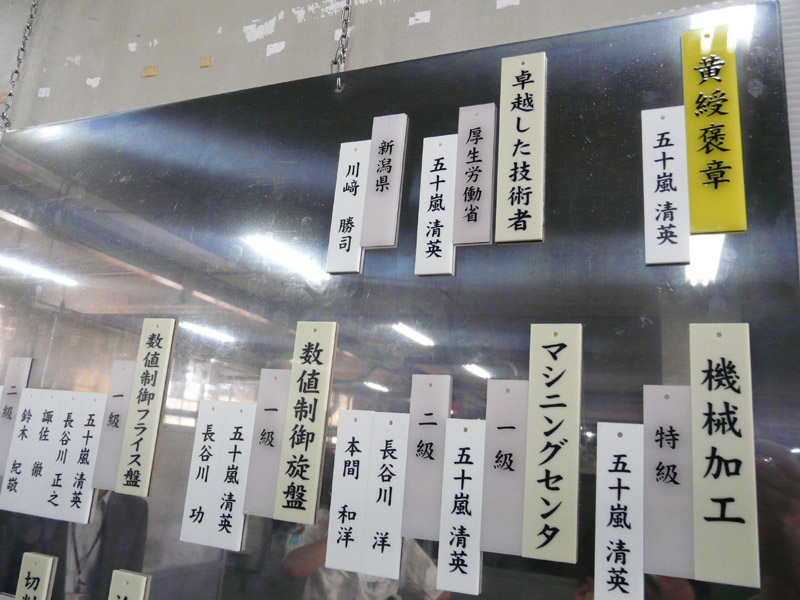 黄綬褒章
五十嵐 清英
卓越した技術者
厚生労働省
五十嵐 清英
新潟県
川﨑 勝司
機械加工
特級
五十嵐 清英
マシニングセンタ
一級
五十嵐 清英
二級
長谷川 洋
本間 和洋
数値制御旋盤
一級
五十嵐 清英
長谷川 功
数値制御フライス盤
一級
五十嵐 清英
長谷川 正之
諏佐 徹
鈴木 紀敬
二級
切